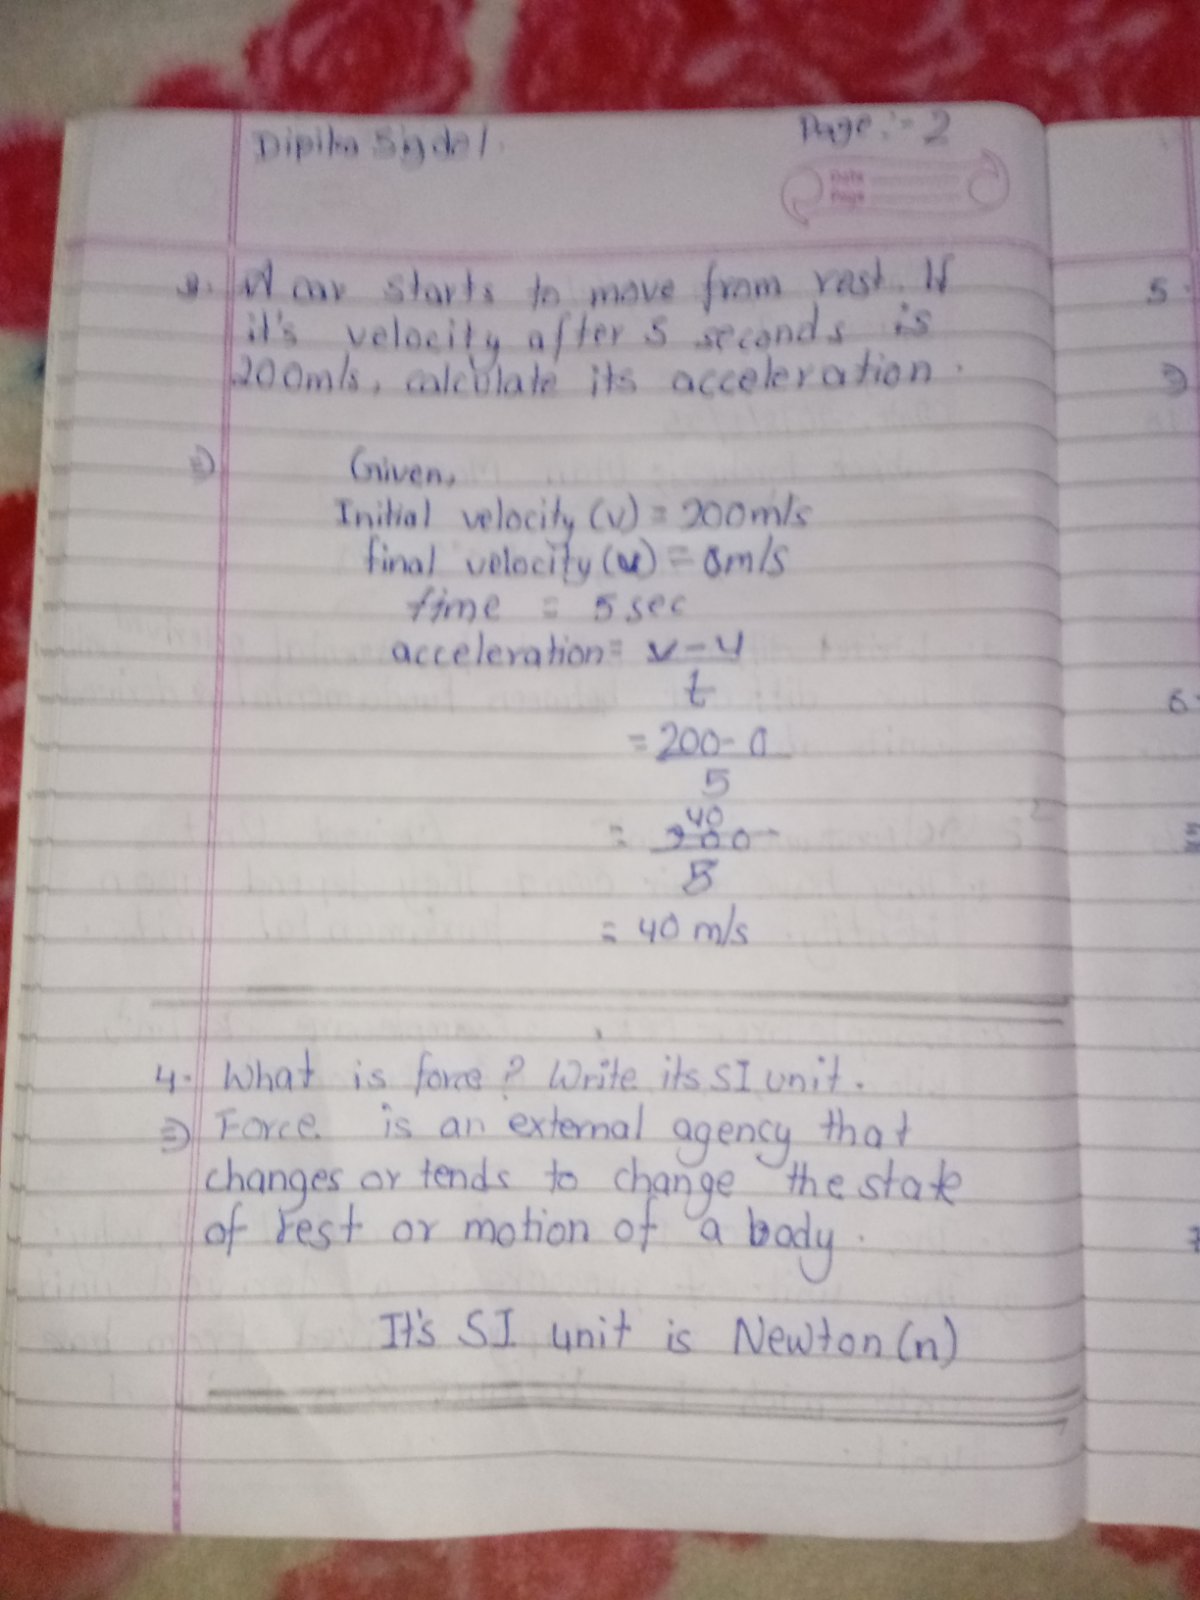 Dipika Sigdel
Page :- 2
Date
Page
3. A car starts to move from rest. If
it's velocity after 5 seconds is
200m/s, calculate its acceleration.
⇒ Given,
Initial velocity (v) = 200m/s
final velocity (u) = 0m/s
time = 5 sec
acceleration = v-u
t
= 200-0
5
40
= 200
5
= 40 m/s
4. What is force? Write its SI unit.
⇒ Force is an external agency that
changes or tends to change the state
of rest or motion of a body.
It's SI unit is Newton (n)
5.
⇒
6.
7